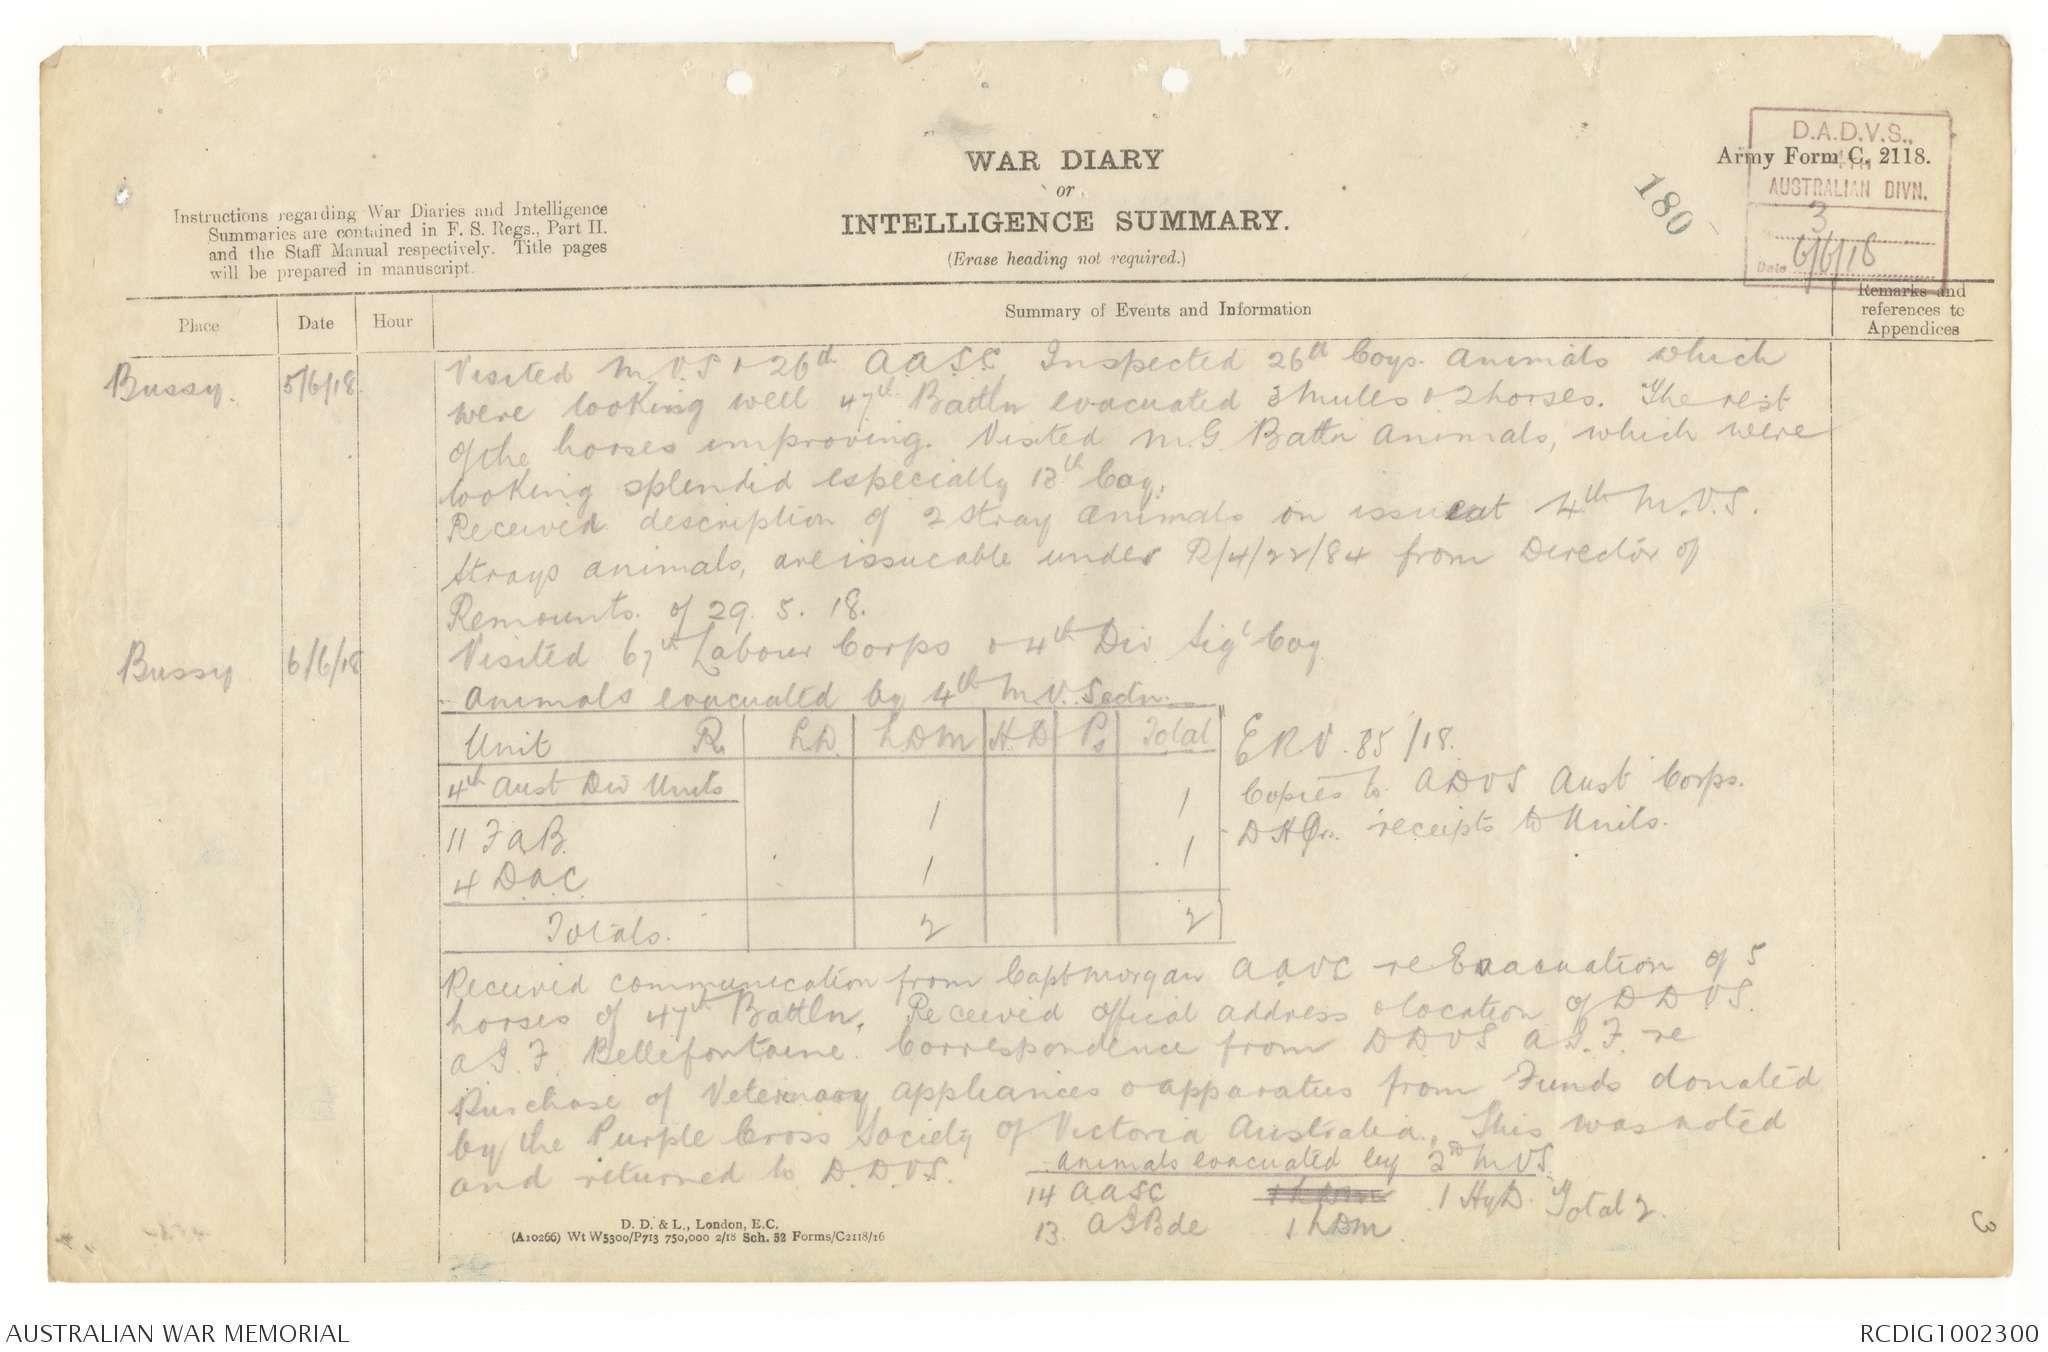 WAR DIARY
or
INTELLIGENCE SUMMARY.
(Erase heading not required.)
Army Form C. 2118.
D.A.D.V.S.,
4TH
AUSTRALIAN DIVN.
3
Date 6/6/18
180
Instructions regarding War Diaries and Intelligence
Summaries are contained in F. S. Regs., Part II.
and the Staff Manual respectively. Title pages
will be prepared in manuscript.
Place Date Hour Summary of Events and Information Remarks and references to Appendices
Bussy. 5/6/18. Visited M.V.S & 26th A.A.S.C. Inspected 26th Coys. animals which
were looking well 47th Battln evacuated 3 Mules & 2 horses. The rest
of the horses improving. Visited M.G. Battn animals, which were
looking splendid especially 13th Coy.
Received description of 2 stray animals on issue at 4th M.V.S.
Strays animals, are issueable under R/4/22/84 from Director of
Remounts. of 29. 5. 18.
Bussy 6/6/18 Visited 67th Labour Corps & 4th Div Sigl Coy
Animals evacuated by 4th M.V. Sectn.
Unit R. L.D. L.D.M H.D Ps Total
4th Aust Div Units
11 F.A.B. 1 1
4 D.A.C. 1 1
Totals. 2 2
E R V. 85/18.
Copies to ADVS Aust Corps.
D H Qrs. receipts to Units.
Received communication from Capt Morgan A.A.V.C re Evacuation of 5
horses of 47th Battln. Received offical address & location of D.D.V.S.
A.I.F. Bellefontaine. Correspondence from D.D.V.S A.I.F. re
Purchase of Veterinary appliances & apparatus from Funds donated
by the Purple Cross Society of Victoria Australia. This was noted
and returned to D.D.V.S.
Animals evacuated by 2nd M.V.S.
14 A.A.S.C 1 HyD. Total 2.
13. A I Bde 1 LDM.
D. D. & L., London, E.C.
(A10266) Wt W5300/P713 750,000 2/18 Sch. 52 Forms/C2118/16
3
AUSTRALIAN WAR MEMORIAL
RCDIG1002300